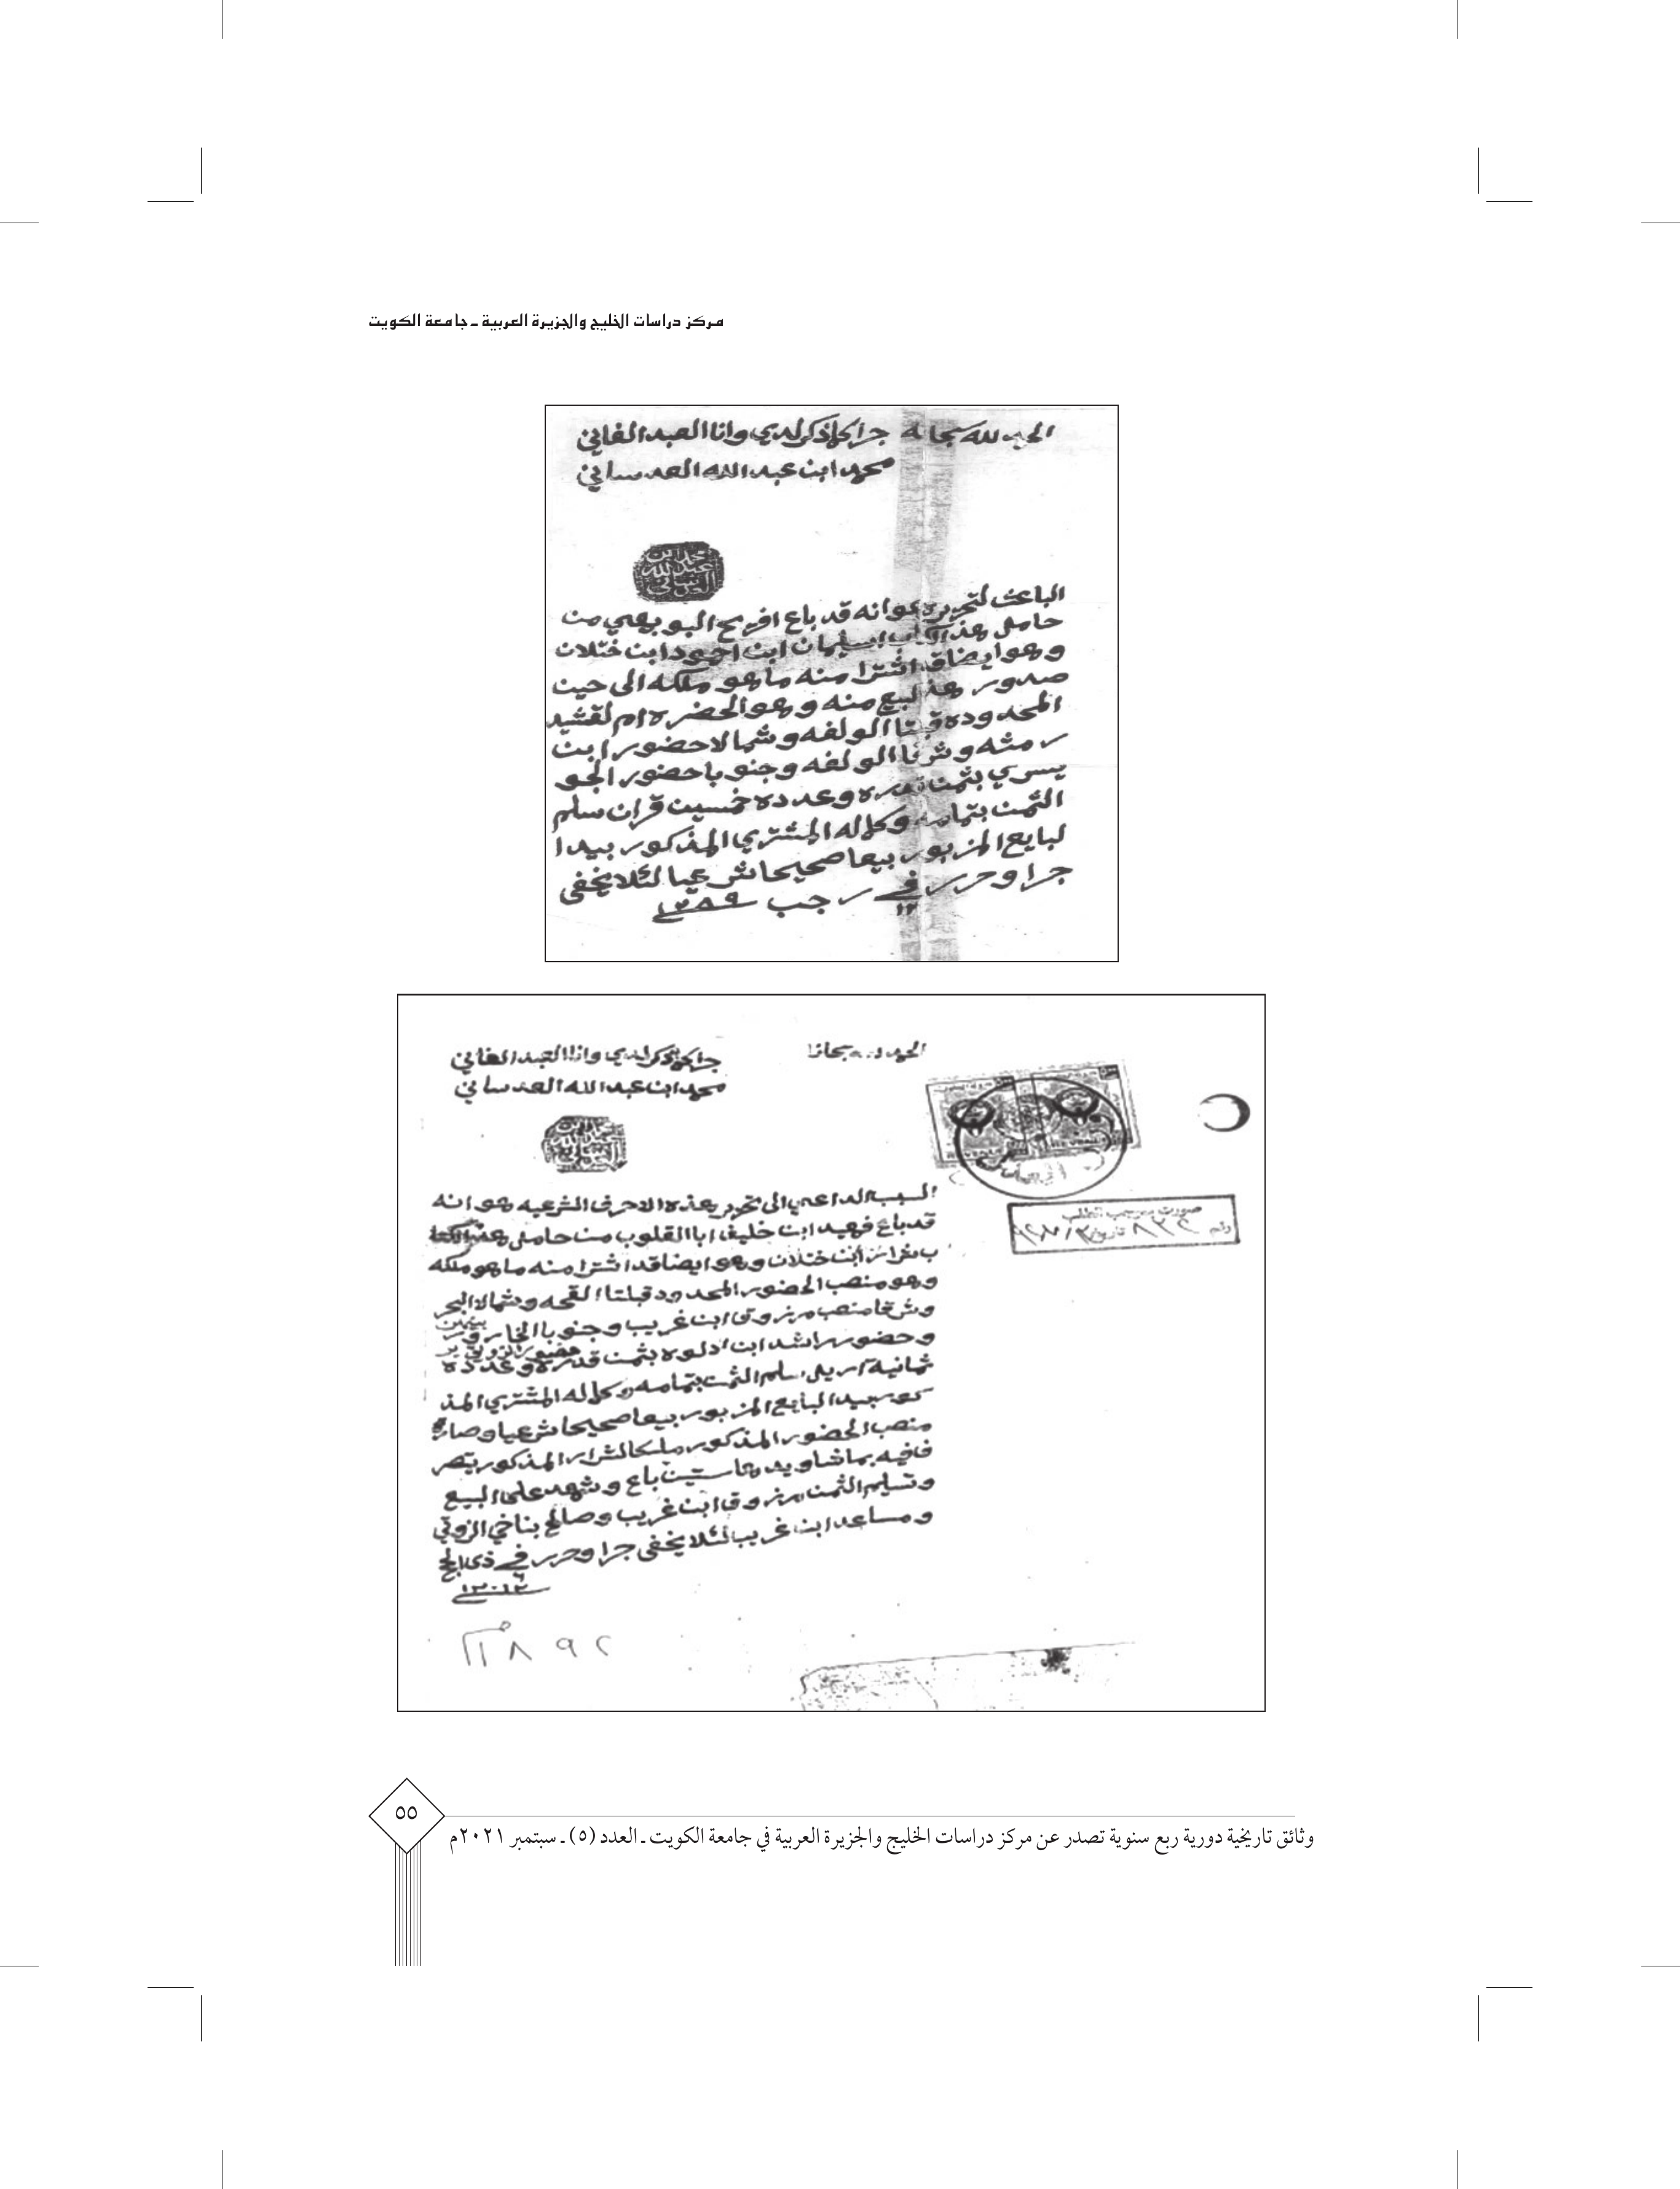 مركز دراسات الخليج والجزيرة العربية ـ جامعة الكويت
الحمد لله سبحانه جرا كما ذكر لدي وانا العبد الفاني
محمد ابن عبد الله العدساني
محمد ابن
عبد الله
العدساني
الباعث لتحريره هو انه قد باع افريح البو يهيي من
حامل هذ الكتاب سليمان ابن احمود ابن ختلان
وهو ايضا قد اشترا منه ما هو ملكه الى حين
صدور هذ البيع منه وهو الحضره ام لقشيد
المحدوده قبلتا الولفه وشمالا حضور ابن
رمثه وشرقا الولفه وجنوبا حضور الجو
يسري بثمن قدره وعدده خمسين قران سلم
الثمن بتمامه وكماله المشتري المذكور بيد ا
لبايع المزبور بيعا صحيحا شرعيا لئلا يخفى
جرا وحرر في ١٢ رجب ١٢٨٩
الحمد لله سبحانه
جرا كما ذكر لدي وانا العبد الفاني
محمد ابن عبد الله العدساني
السبب الداعي الى تحرير هذه الاحرف الشرعيه هو انه
قد باع فهيد ابن خليف ابا القلوب من حامل هذ الكتا
ب شرار ابن ختلان وهو ايضا قد اشترا منه ما هو ملكه
وهو منصب الحضور المحدود قبلتا القحه وشمالا البحر
وشرقا منصب مرزوق ابن غريب وجنوبا
وحضور راشد ابن ادلوه بثمن قدره وعدده
ثمانية آريل سلم الثمن بتمامه وكماله المشتري المذ
كور بيد البايع المزبور بيعا صحيحا شرعيا وصار
منصب الحضور المذكور ملكا لشرار المذكور يتصر
ف فيه بما شا ويد هاستين باع وشهد على البيع
وتسليم الثمن مرزوق ابن غريب وصالح بناخي الزوقي
ومساعد ابن غريب لئلا يخفى جرا وحرر في ذى الحج
١٣٠١٢
صورت بموجب الطلب
رقم ٨٢٢ تاريخ
٥٥
وثائق تاريخية دورية ربع سنوية تصدر عن مركز دراسات الخليج والجزيرة العربية في جامعة الكويت ـ العدد (٥) ـ سبتمبر ٢٠٢١م